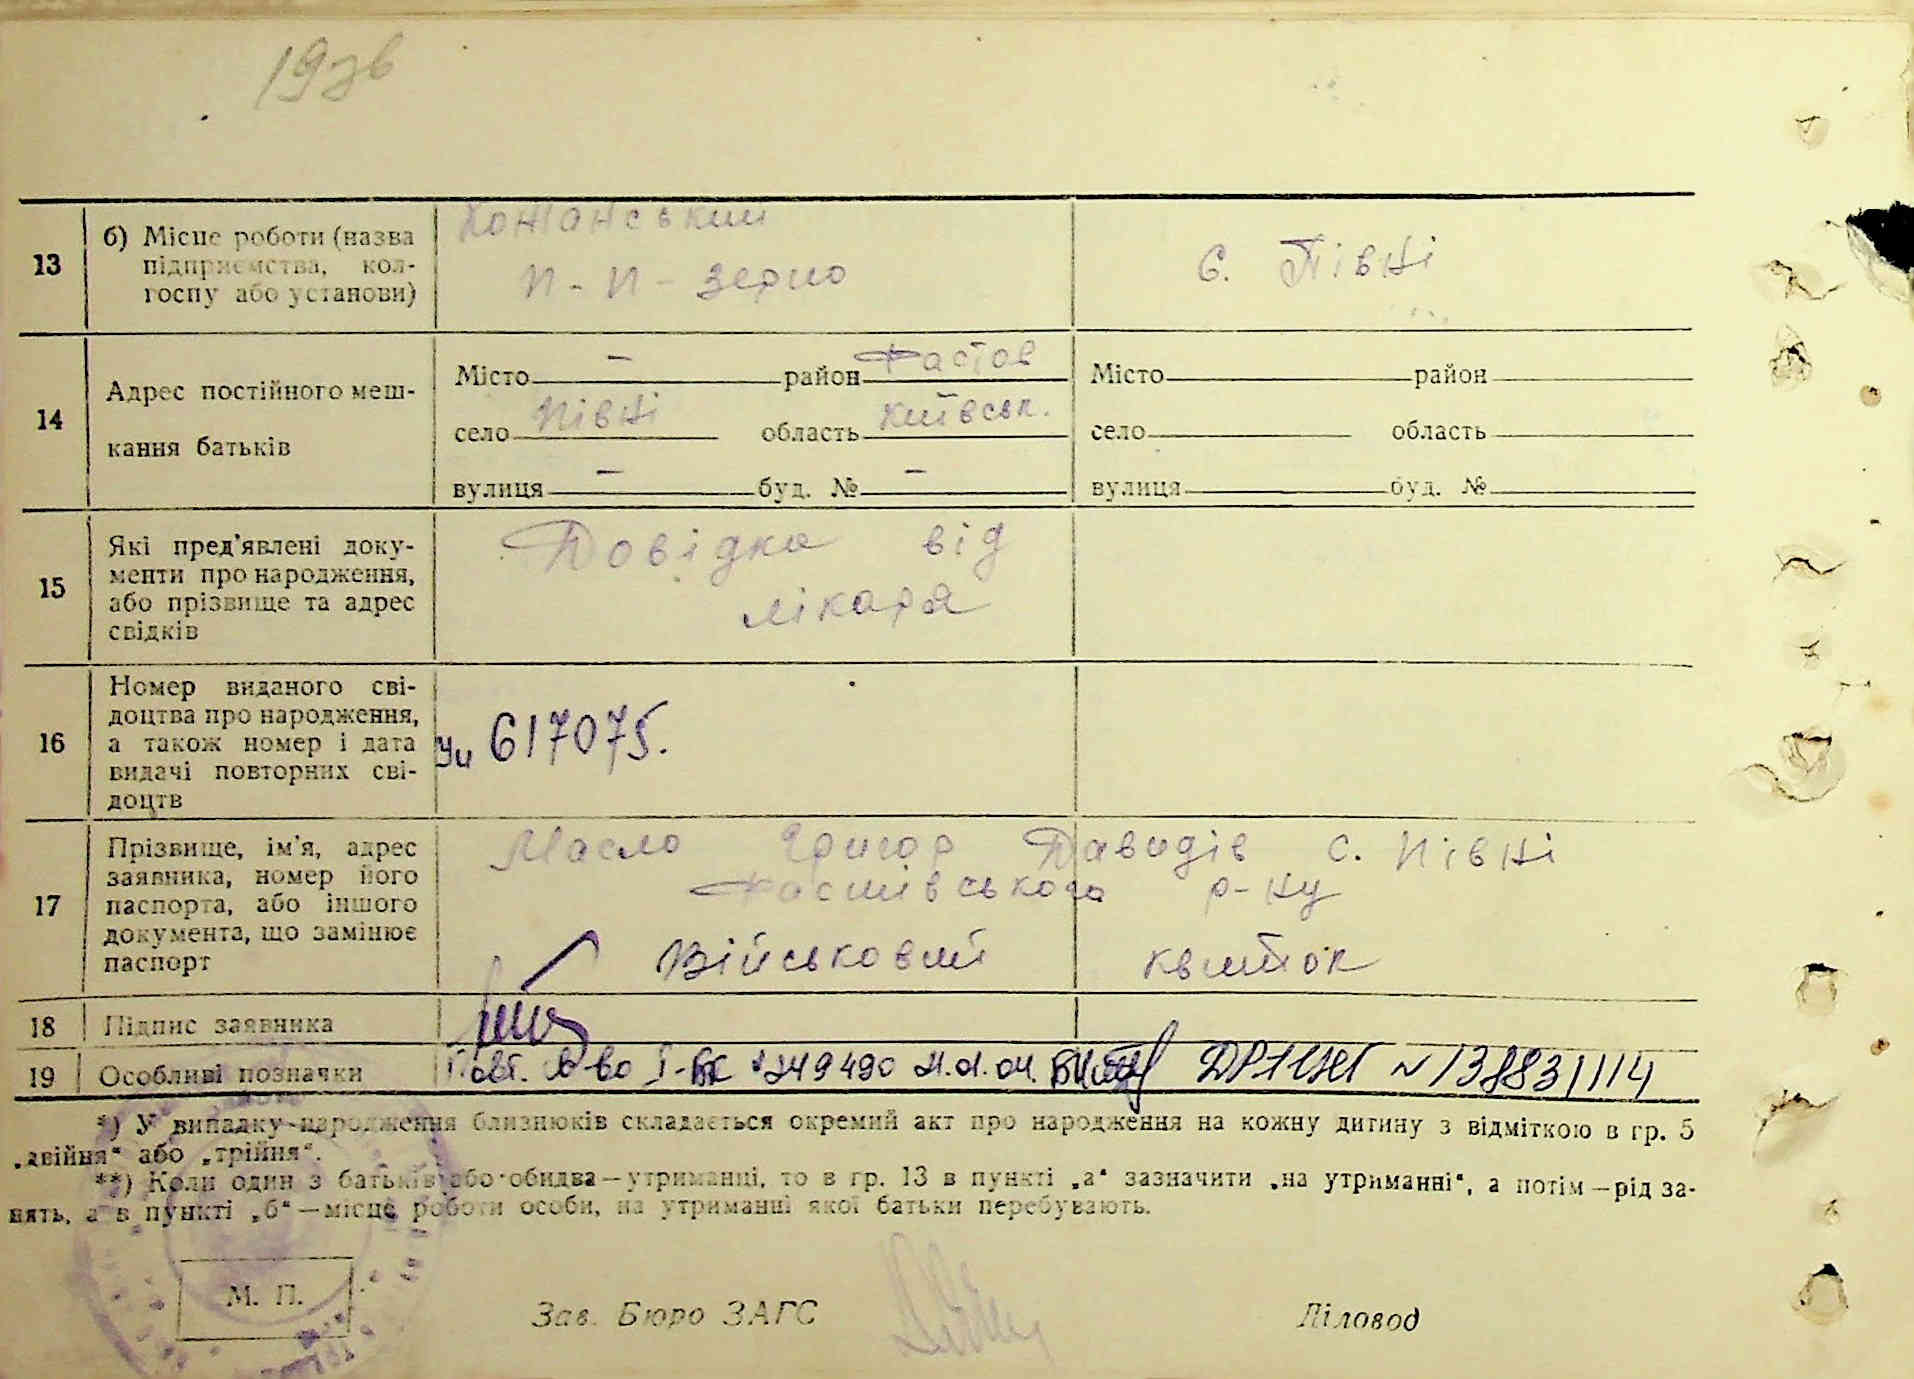 13
б) Місце роботи (назва
підприємства, кол-
госпу або установи)
Кожанський
п-п-зерно
с. Півні
14
Адрес постійного меш-
кання батьків
Місто — район Фастов
село Півні область Київськ.
вулиця — буд. № —
Місто район
село область
вулиця буд. №
15
Які пред'явлені доку-
менти про народження,
або прізвище та адрес
свідків
Довідка від
лікаря
16
Номер виданого сві-
доцтва про народження,
а також номер і дата
видачі повторних сві-
доцтв
617075.
17
Прізвище, ім'я, адрес
заявника, номер його
паспорта, або іншого
документа, що замінює
паспорт
Масло Григор Давидів с. Півні
Фастівського р-ну
Військовий квиток
18
Підпис заявника
19
Особливі позначки
Повт. св-во І-БК 249490 21.01.04.
*) У випадку народження близнюків складається окремий акт про народження на кожну дитину з відміткою в гр. 5
„двійня“ або „трійня“.
**) Коли один з батьків або обидва—утриманці, то в гр. 13 в пункті „а“ зазначити „на утриманні“, а потім—рід за-
нять, а в пункті „б“—місце роботи особи, на утриманні якої батьки перебувають.
М. П.
Зав. Бюро ЗАГС
Діловод